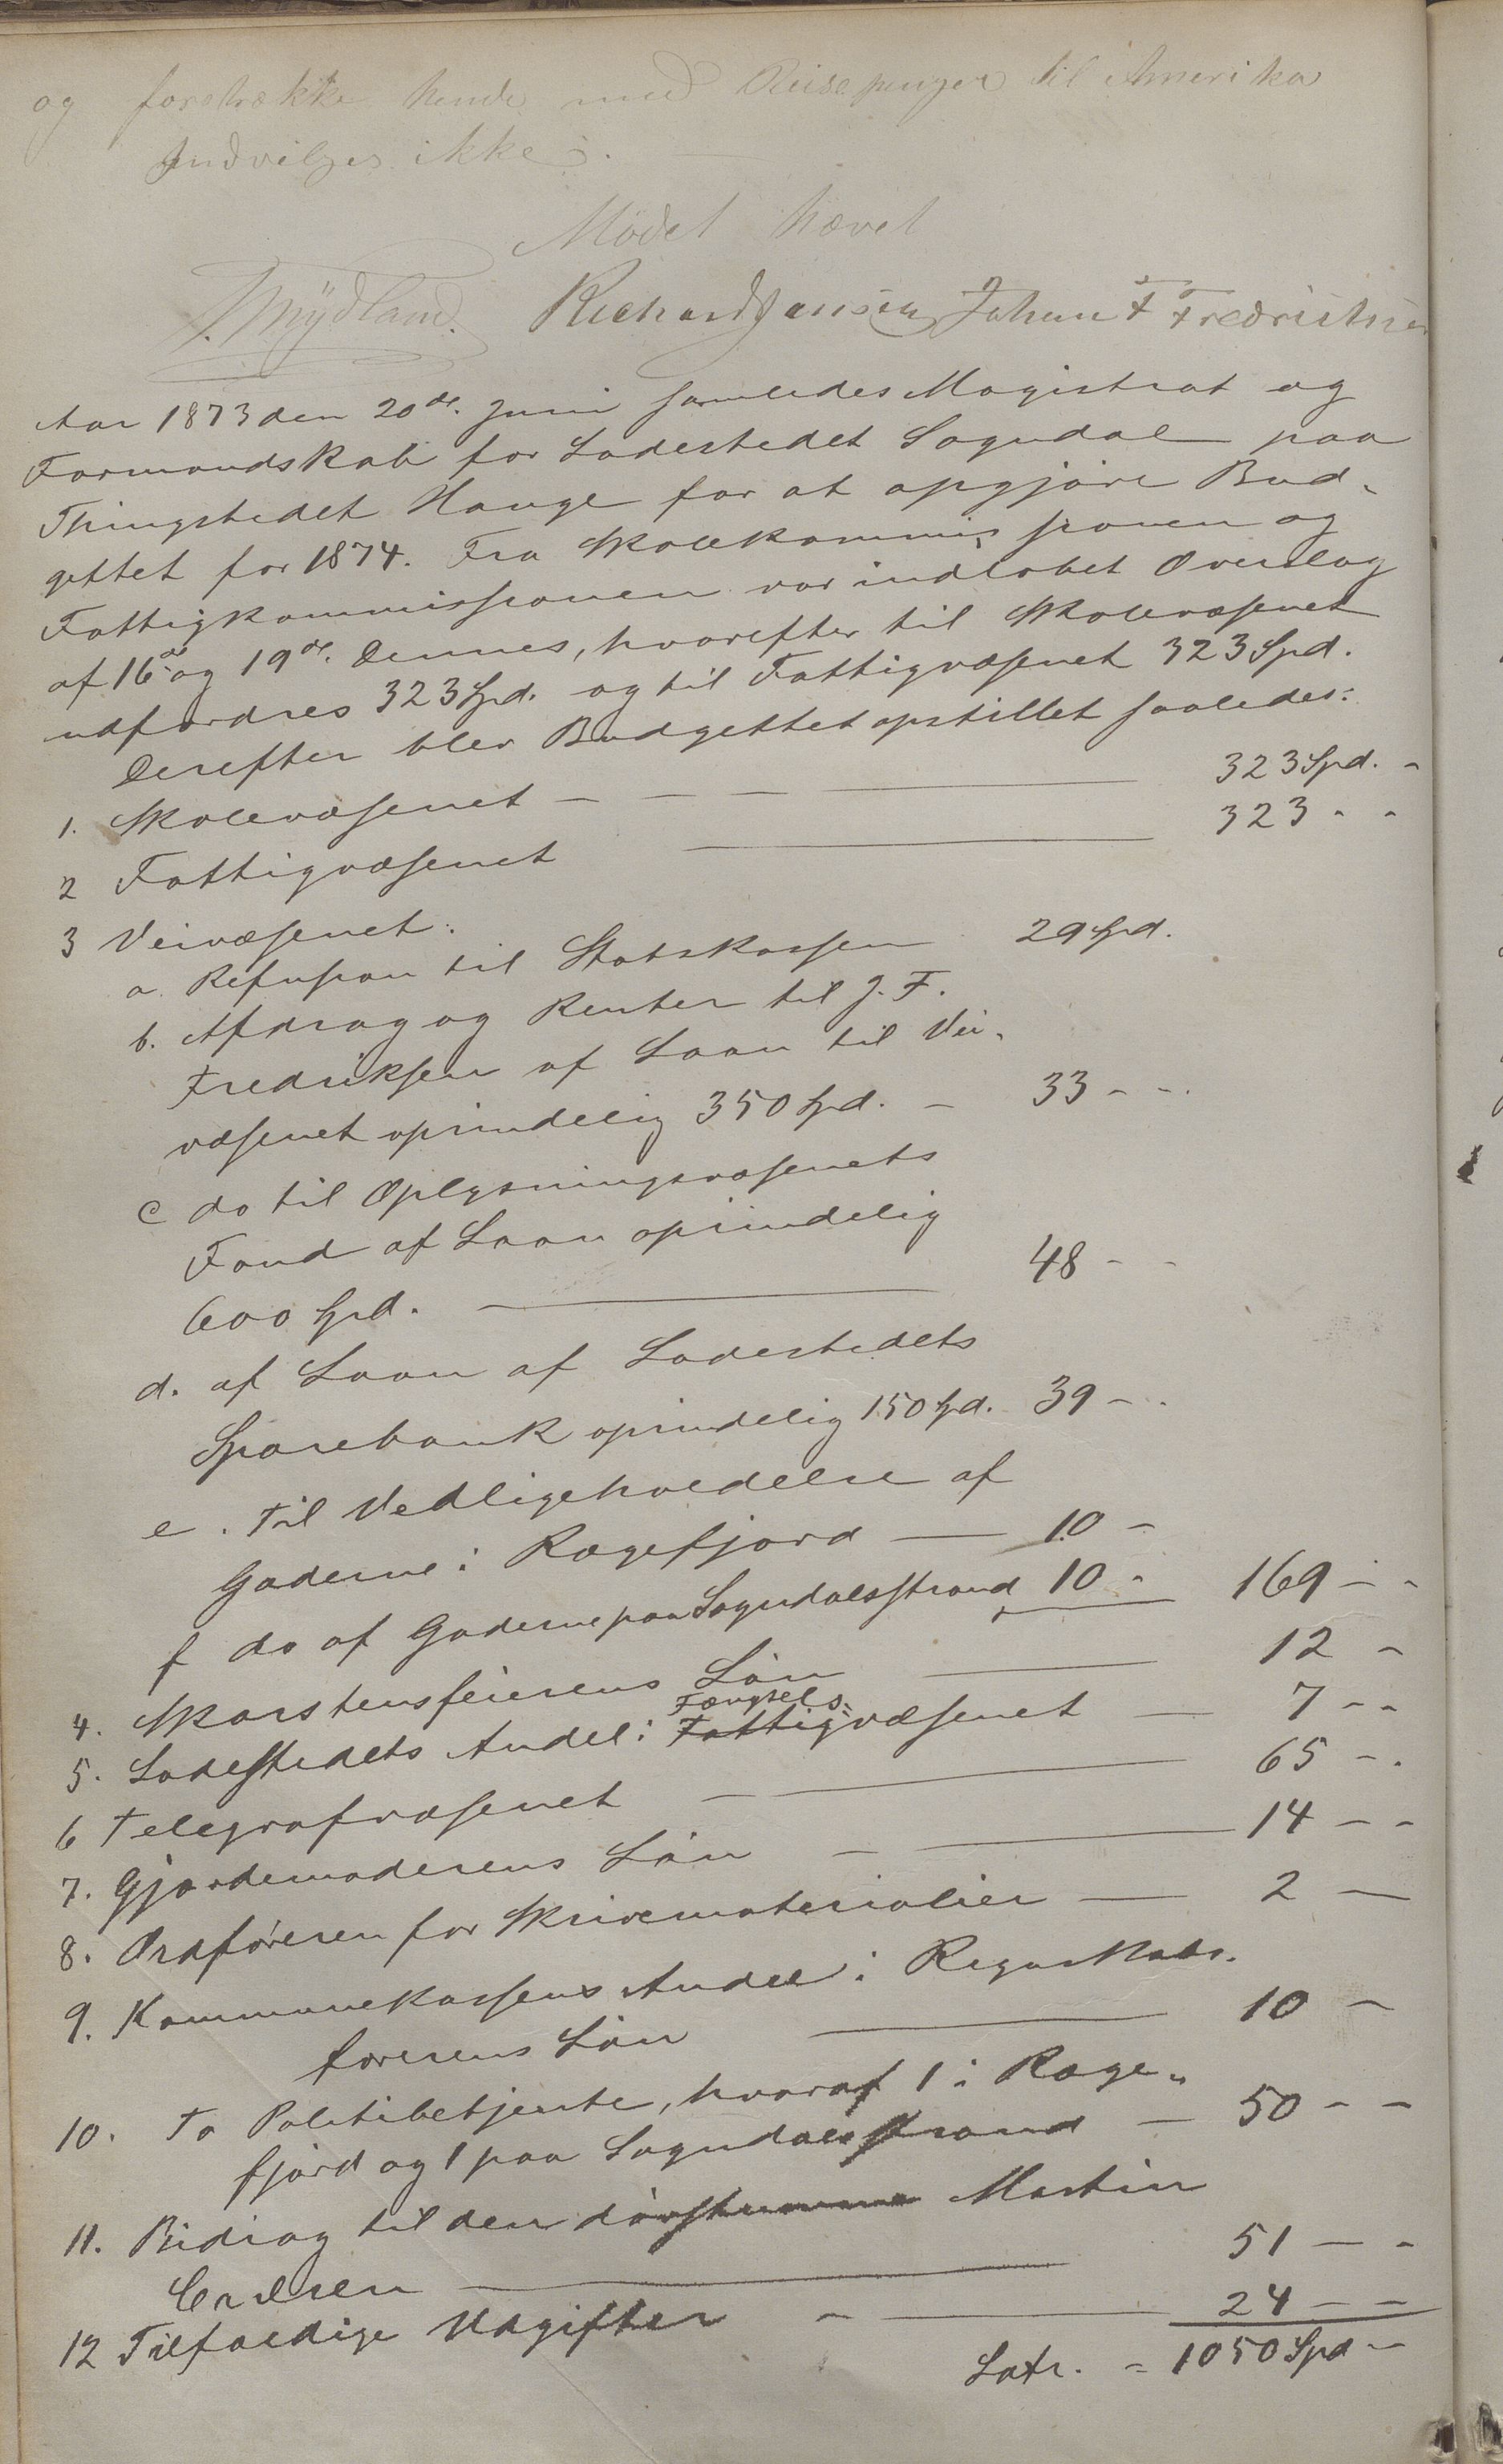 og forstrække hende med Reisepenger til Amerika
Indvilges ikke.
Mödet hævet
Mydland. Richard Jansen Johan F Fredriksen
Aar 1873 den 20de. Juni samledes Magistrat og
Formandskab for Ladestedet Sogndal paa
Thingstedet Hauge for at opgjöre Bud-
gettet for 1874. Fra Skolekommissionen og
Fattigkommissionen var indløbet Overslag
af 16de og 19de. Dennes, hvorefter til Skolevæsenet
udfordres 323 Spd. og til Fattigvæsenet 323 Spd.
Derefter blev Budgettet opstillet saaledes:
1. Skolevæsenet - - - 323 Spd. -
2 Fattigvæsenet 323 - -
3 Veivæsenet:
a. Refusion til Statskassen 29 Spd.
b. Afdrag og Renter til J. F.
Fredriksen af Laan til Vei-
væsenet oprindelig 350 Spd. - 33 - -
c do til Oplysningsvæsenets
Fond af Laan oprindelig
600 Spd. 48 - -
d. af Laan af Ladestedets
Sparebank oprindelig 150 Spd. 39 - -
e. Til Vedligeholdelse af
Gaderne i Rægefjord 10 -
f do af Gaderne paa Sogndalsstrand 10 - 169 - -
4. Skorstensfeierens Lön 12 -
5. Ladestedets Andel i Fattig Fængsels-væsenet 7 - -
6 Telegrafvæsenet 65 - -
7. Gjordemoderens Lön 14 - -
8. Ordföreren for Skrivematerialier 2 -
9. Kommunekassens Andel i Regnskabs-
förerens Lön 10 -
10. To Politibetjente, hvoraf 1 i Ræge-
fjord og 1 paa Sogndalsstrand - 50 - -
11. Bidrag til den dövstumme Martin
51 - -
12 Tilfældige Udgifter 24 - -
Latr. - 1050 Spd -